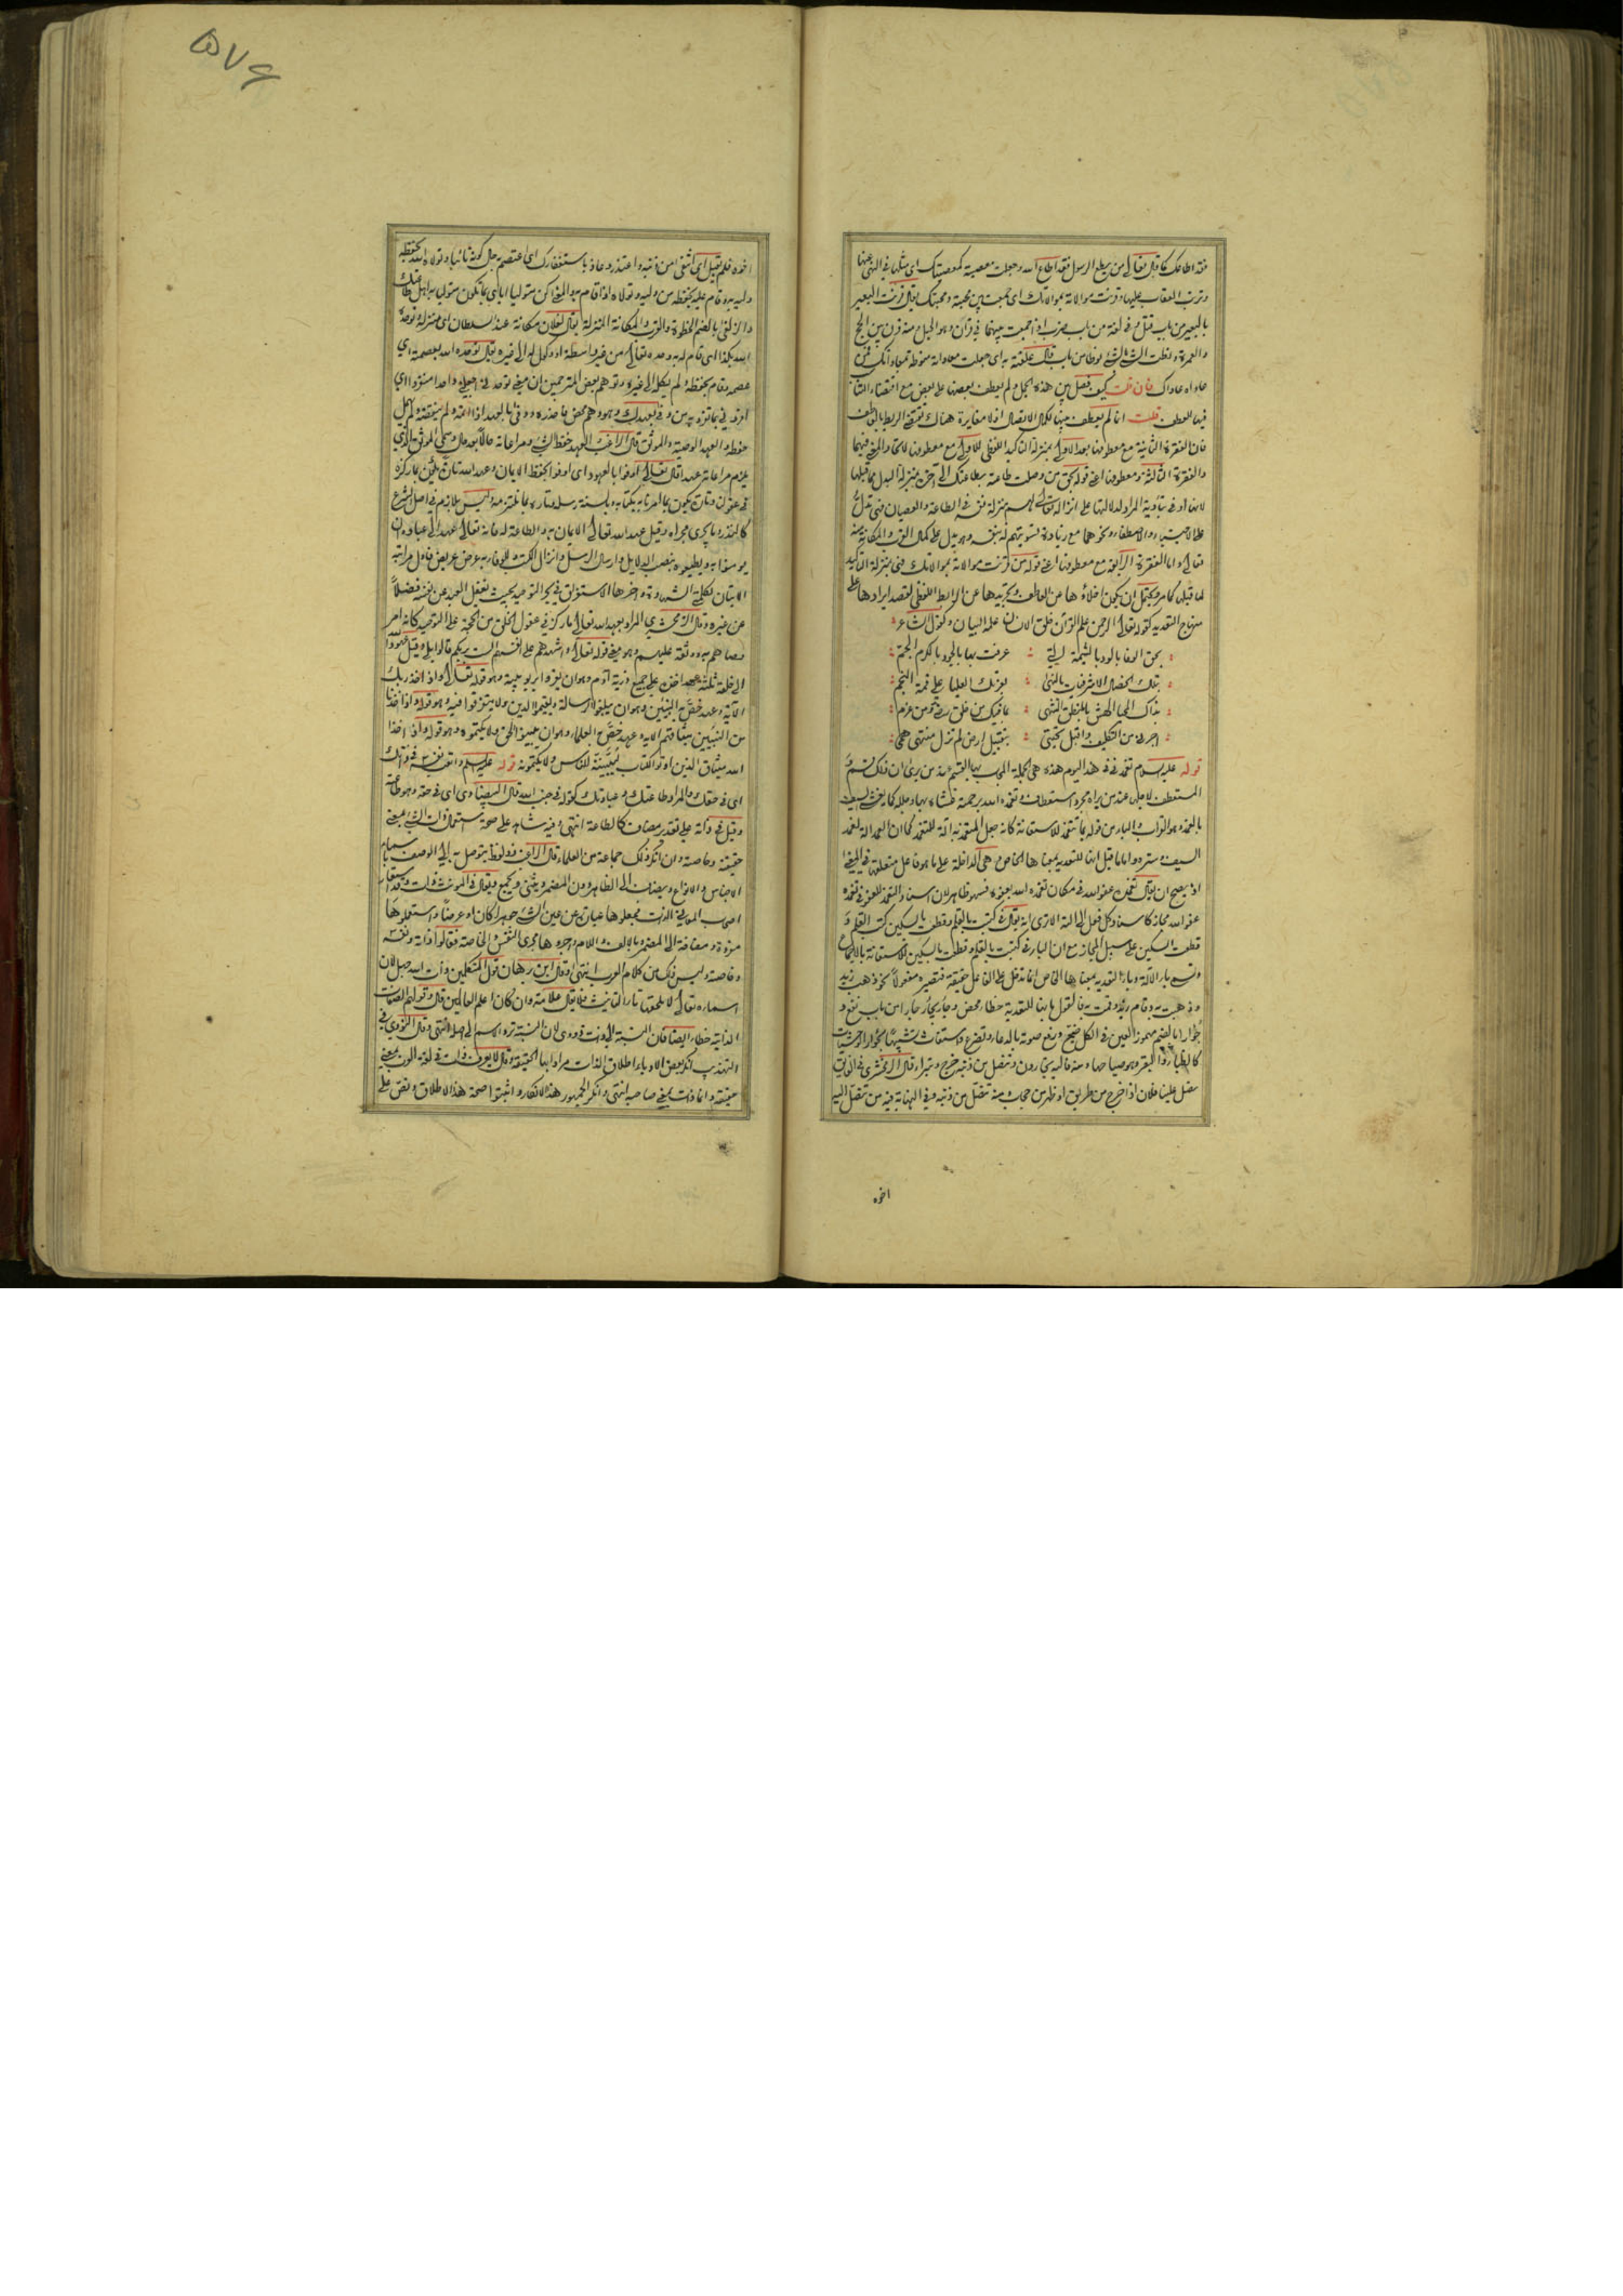 فقد اطاعك كما قال تعالى من يطع الرسول فقد اطاع الله وجعلت معصيته كمعصيتك اى مثلها فى النهى عنها
وترتب العقاب عليها وقرنت موالاته بموالاتك اى جمعت بين محبته ومحبتك يقال قرنت البعير
بالبعير من باب قتل وفى لغة من باب ضرب اذا جمعت بينهما فى قرآن وهو الحبل ومنه قرن بين الحج
والعمرة ونطت الشئ بالشئ نوطا من باب قال علقته به اى جعلت معاداته منوطة بمعاداتك فمن
عاداه عاداك فان قلت كيف فصل بين هذه الجمل ولم يعطف بعضها على بعض مع اقتضاء المقام
فيها للعطف قلت انما لم يعطف بينها لكمال الاتصال اذ لا مغايرة هناك تقتضى الربط بالعاطف
فان الفقرة الثانية مع معطوفها بعد الاولى بمنزلة التاكيد اللفظى للاولى مع معطوفها لاتحاد المعنى فيهما
والفقرة الثالثة ومعطوفها اعنى قوله بحق من وصلت طاعته بطاعتك الى آخره بمنزلة البدل مما قبلها
لانها اوفى بتادية المراد لدلالتها على انزاله تعالى لهم منزلة نفسه فى الطاعة والعصيان فهى تدل
على الاجتباء والاصطفاء ونحوهما مع زيادة تسويتهم له بنفسه وهو يدل على كمال القرب والمكانة منه
تعالى واما الفقرة الرابعة مع معطوفها اعنى قوله من قرنت موالاته بموالاتك فهى بمنزلة التاكيد
لما قبلها كما مر ويحتمل ان يكون اخلاؤها عن العاطف وتجريدها عن الرابط اللفظى لقصد ايرادها على
منهاج التعديد كقوله تعالى الرحمن علم القرآن خلق الانسان علمه البيان وكقول الشاعر
بحق الوفا بالود بالشيمة التى عرفت بها بالجود بالكرم الجم
بتلك الخصال الاشرفيات بالنهى بعزتك العليا على قمة النجم
بذاك المحيا الهش بالمنطق الشهى بما فيك من خلق رضى ومن عزم
اجرنى من التكليف واقبل تحيتى بتقبيل ارض لم تزل منتهى همى
قوله عليه السلام تغمدنى فى هذا اليوم هذه هى الجملة المجاب بها القسم عند من يرى ان ذلك قسم
المستعطف لا جلى عند من يراه مجرد استعطاف وتغمده الله برحمته غشاه بها وجلله كما يغشى السيف
بالغمد وهو القراب والباء من قوله بما تتغمد للاستعانة كانه جعل المتغمد به آلة للتغمد كما ان الغمد آلة لغمد
السيف وستره واما ما قيل انها للتعدية بمعناها الخاص وهى الداخلة على ما هو فاعل متعلقها فى المعنى
اذ يصح ان يقال تغمده عفو الله فى مكان تغمده الله بعفوه فسهو ظاهر لان اسناد التغمد للعفو فى تغمده
عفو الله مجاز كاسناد كل فعل الى آلته الا ترى انه يقال فى كتبت بالقلم وقطعت بالسكين كتب القلم و
قطعت السكين على سبيل المجاز مع ان الباء فى كتبت بالقلم وقطعت بالسكين للاستعانة بالاجماع
وتسمى باء الالة وباء التعدية بمعناها الخاص انما تدخل على الفاعل حقيقة فتصيره مفعولا نحو ذهب زيد
وذهبت به وقام زيد وقمت به فالقول بانها للتعدية خطاء محض وجأر يجأر جأرا من باب نفع و
جؤارا بالضم مهموز العين فى الكل ضج ورفع صوته بالدعاء وتضرع واستغاث تشبيها بجؤار الوحشيات
كالظباء والبقر وهو صياحها ومنه فاليه يجأرون وتنصل من ذنبه خرج وتبرأ قال الزمخشرى فى الفائق
نصل علينا فلان اذا خرج من طريق او ظهر من حجاب ومنه تنصل من ذنبه وفى النهاية فيه من تنصل اليه
اخوه
اخوه فلم يقبل اى انتفى من ذنبه واعتذر وعاذ باستغفارك اى اعتصم به حال كونه تائبا وتولاه الله بحفظه
وليه به وقام عليه بحفظه من وليه وتولاه اذا قام به والمعنى كن متوليا اياى بما تكون متوليا به اهل طاعتك
والزلفى بالضم الحظوة والقرب والمكانة المنزلة يقال لفلان مكانة عند السلطان اى منزلة وتوحده
الله بكذا اى قام له به وحده تعالى من غير واسطة او وكول له الى غيره يقال توحده الله بعصمته اى
عصمه وقام بحفظه ولم يكله الى غيره وتوهم بعض المترجمين ان معنى توحدنى اجعلنى واحدا منفردا اى
افردنى بما تفرد به من وفى بعهدك وهو وهم محض فاحذره ووفى بالعهد اذا اتمه ولم ينقضه ولم يخل
حفظه والعهد الوصية والموثق قال الراغب العهد حفظ الشئ ومراعاته حالا بعد حال وسمى الموثق الذى
يلزم مراعاته عهدا قال تعالى اوفوا بالعهد اى اوفوا بحفظ الايمان وعهد الله تارة يكون بما ركزه
فى عقولنا وتارة يكون بما امرنا به بكتابه وبالسنة رسله وتارة بما نلتزمه وليس بلازم فى اصل الشرع
كالنذر وما يجرى مجراه وقيل عهد الله تعالى الايمان به والطاعة له فانه تعالى عهد الى عباده ان
يؤمنوا به ويطيعوه بنصب الدلايل وارسال الرسل وانزال الكتب وللوفاء به عرض عريض فاول مراتبه
الاتيان بكلمتى الشهادة وآخرها الاستغراق فى بحر التوحيد بحيث يغفل العبد عن نفسه فضلا
عن غيره وقال الزمخشرى المراد بعهد الله تعالى ما ركز فى عقول الخلق من الحجة على التوحيد كانه امر
وصاهم به ووثقه عليهم وهو معنى قوله تعالى واشهدهم على انفسهم الست بربكم قالوا بلى وقيل عهد الله
الى خلقه ثلثة عهد اخذه على جميع ذرية آدم وهو ان يقروا بربوبيته وهو قوله تعالى واذ اخذ ربك
الآية وعهد خص به النبيين وهو ان يبلغوا الرسالة ويقيموا الدين ولا يتفرقوا فيه وهو قوله واذ اخذنا
من النبيين ميثاقهم الآية وعهد خص به العلماء وهو ان يبينوا الحق ولا يكتموه وهو قوله واذ اخذ
الله ميثاق الذين اوتوا الكتاب لتبيننه للناس ولا يكتمونه قوله عليه السلام واتعب نفسه فى ذاتك
اى فى حقك والمراد طاعتك وعبادتك كقوله فى جنب الله قال البيضاوى اى فى حقه وهو طاعته
وقيل فى ذاته على تقدير مضاف كالطاعة انتهى وفيه شاهد على صحة استعمال ذات الشئ بمعنى
حقيقته وخاصته وان انكر ذلك جماعة من العلماء قال الراغب ذو لفظ يتوصل به الى الوصف باسماء
الاجناس والانواع ويضاف الى الظاهر دون المضمر ويثنى ويجمع ويقال فى المونث ذات وقد استعار
اصحاب المعانى الذات فجعلوها عبارة عن عين الشئ جوهرا كان او عرضا واستعملوها
مفردة ومضافة الى المضمر وبالالف واللام واجروها مجرى النفس والخاصة فقالوا ذاته ونفسه
وخاصته وليس ذلك من كلام العرب انتهى وقال ابن برهان قول المتكلمين ذات الله جهل لان
اسماءه تعالى لا تلحقها تاء التانيث فلا يقال علامة وان كان اعلم العالمين قال وقولهم الصفات
الذاتية خطاء ايضا فان النسبة الى ذات ذووى لان النسبة ترد الاسم الى اصله انتهى وقال النووى فى
التهذيب انكر بعض الادباء اطلاق الذات مرادا بها الحقيقة وقال لا يعرف ذات فى لغة العرب بمعنى
حقيقة وانما ذات بمعنى صاحبة انتهى وانكر الجمهور هذا الانكار واثبتوا صحة هذا الاطلاق ونص على